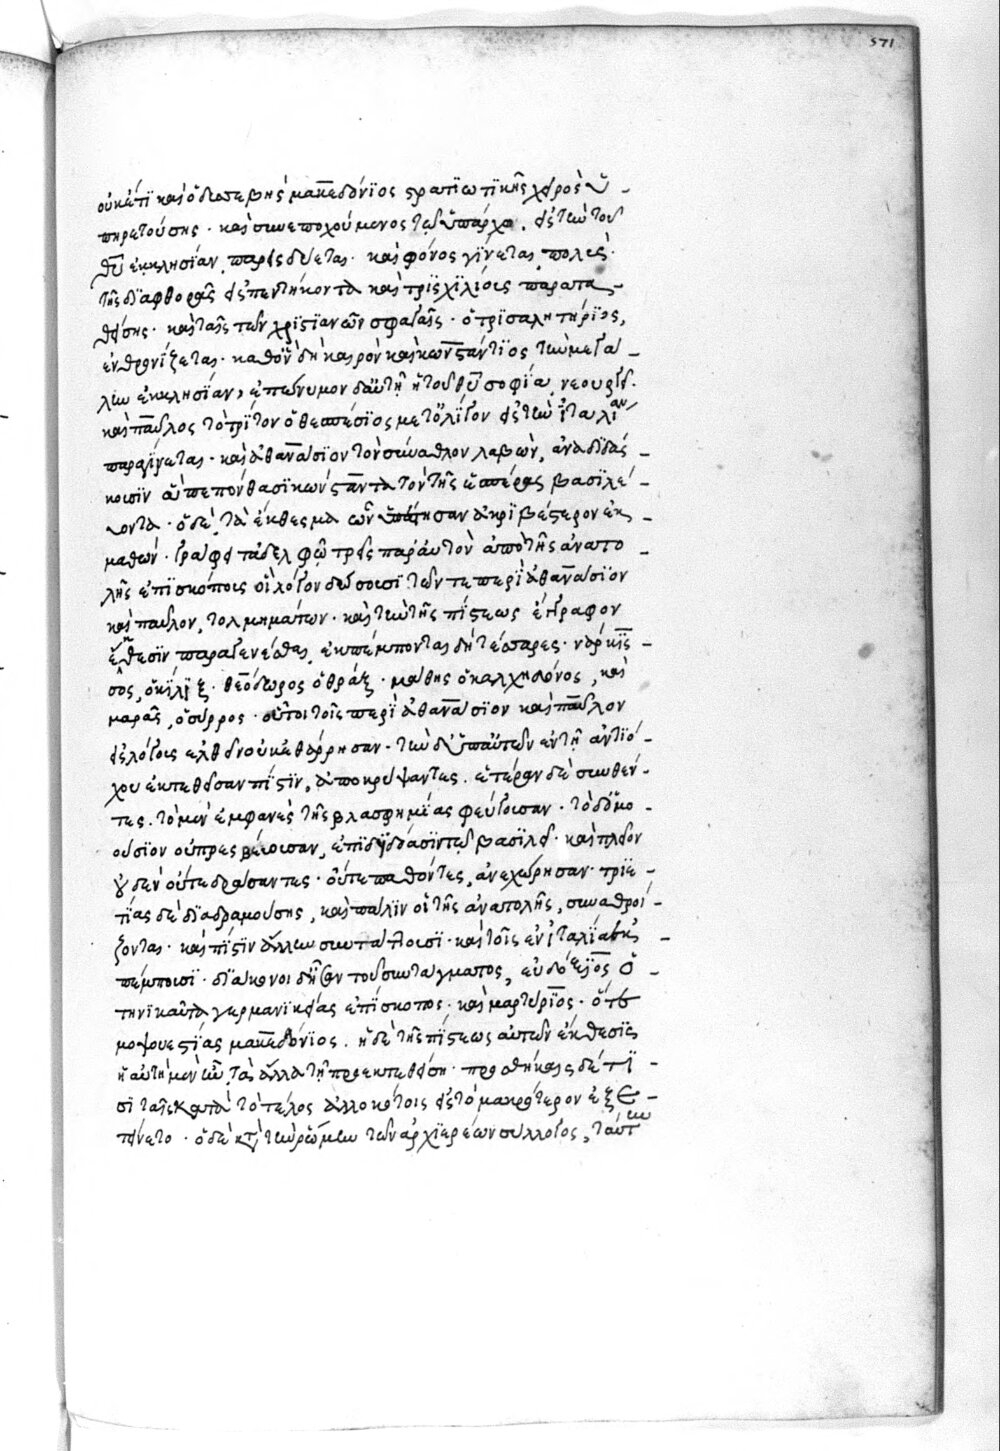 571
οὐκέτι καὶ ὁ δυσσεβὴς μακεδόνιος στρατιωτικῆς χειρὸς ὑ -
πηρετούσης · καὶ συνεποχούμενος τῷ ὑπάρχῳ, εἰς τὴν τοῦ
θῦ ἐκκλησίαν παρεισδύεται · καὶ φόνος γίνεται πολὺς
τῆς διαφθορᾶς εἰς πεντήκοντα καὶ τρισχιλίους παρατα -
θείσης · καὶ ταῖς τῶν χριστιανῶν σφαγαῖς · ὁ τρισαλητήριος,
ἐνθρονίζεται · καθ' ὃν δὴ καιρὸν καὶ κωνστάντιος τὴν μεγά -
λην ἐκκλησίαν, ἐπώνυμον δ' αὐτὴ ἡ τοῦ θῦ σοφία νεουργεῖ ·
καὶ παῦλος τὸ τρίτον ὁ θεσπέσιος μετ' ὀλίγον εἰς τὴν ἰταλίαν
παραγίνεται · καὶ ἀθανάσιον τὸν σύναθλον λαβὼν, ἀναδιδάσ -
κουσιν ἃ πεπόνθασι κωνσταντα τὸν τῆς ἑσπέρας βασιλεύ -
οντα · ὁ δὲ τὰ ἔκθεσμα ὧν ἀκριβέστερον ἐκ -
μαθὼν · γράφει τἀδελφῷ τρεῖς παρ' αὐτὸν ἀπὸ τῆς ἀνατο -
λῆς ἐπισκόπους οἳ λόγον δώσουσι τῶν τε περὶ ἀθανάσιον
καὶ παῦλον, τολμημάτων · καὶ τὴν τῆς πίστεως ἔγγραφον
ἔκθεσιν παραγενέσθαι, ἐκπέμπονται δὴ τέσσαρες · νάρκισ -
σος, ὁ κίλιξ · θεόδωρος ὁ θρᾶξ · μάρης ὁ καλχηδόνος, καὶ
μάρκος, ὁ σύρος · οὗτοι τοῖς περὶ ἀθανάσιον καὶ παῦλον
εἰς λόγους ἐλθεῖν οὐκ ἐθάρρησαν · τὴν δ' ὑπ' αὐτῶν ἐν τῇ ἀντιό -
χου ἐκτεθεῖσαν πίστιν, ἀποκρύψαντες · ἑτέραν δὲ συνθέν -
τες · τὸ μὲν ἐμφανὲς τῆς βλασφημίας φεύγουσαν · τὸ δ' ὁμο -
ούσιον οὐ πρεσβεύουσαν, ἐπιδιδόασιν τῷ βασιλεῖ · καὶ πλέον
οὐδὲν οὔτε δράσαντες · οὔτε παθόντες, ἀνεχώρησαν · τριε -
τίας δὲ διαδραμούσης, καὶ πάλιν οἱ τῆς ἀνατολῆς, συναθροί -
ζονται · καὶ πίστιν ἄλλην συντάττουσι · καὶ τοῖς ἐν ἰταλίᾳ ἐκ -
πέμπουσι · διάκονοι δ' ἦσαν τοῦ συντάγματος, εὐδόξιος ὁ -
τηνικαῦτα γερμανικείας ἐπίσκοπος · καὶ μαρτύριος · ὅ τε
μοψουεστίας μακεδόνιος · ἡ δὲ τῆς πίστεως αὐτῶν ἔκθεσις
ἡ αὐτὴ μὲν ἦν τὰ ἄλλα τῇ προεκτεθείσῃ · προσθήκαις δέ τι -
σι ταῖς κατὰ τὸ τέλος ἀλλοκότοις εἰς τὸ μακρότερον ἐξε -
τείνετο · ὁ δὲ κατὰ τὴν ῥώμην τῶν ἀρχιερέων σύλλογος, ταύτην